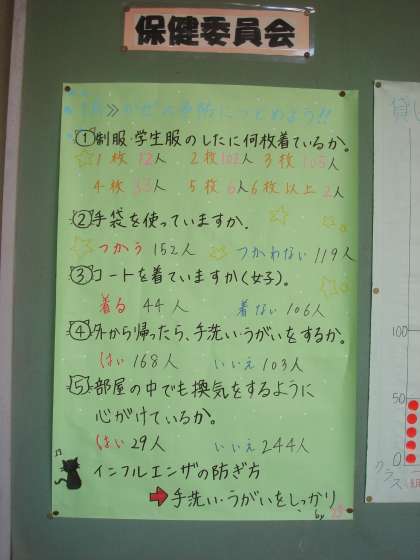 保健委員会
かぜの予防につとめよう!!
①制服・学生服のしたに何枚着ているか。
1枚 12人 2枚 102人 3枚 105人
4枚 33人 5枚 6人 6枚以上 2人
②手袋を使っていますか。
つかう 152人 つかわない 119人
③コートを着ていますか(女子)。
着る 44人 着ない 106人
④外から帰ったら、手洗い・うがいをするか。
はい 168人 いいえ 103人
⑤部屋の中でも換気をするように
心がけているか。
はい 29人 いいえ 244人
インフルエンザの防ぎ方
➡手洗い・うがいをしっかり
by
貸し
100
50
0
クラス